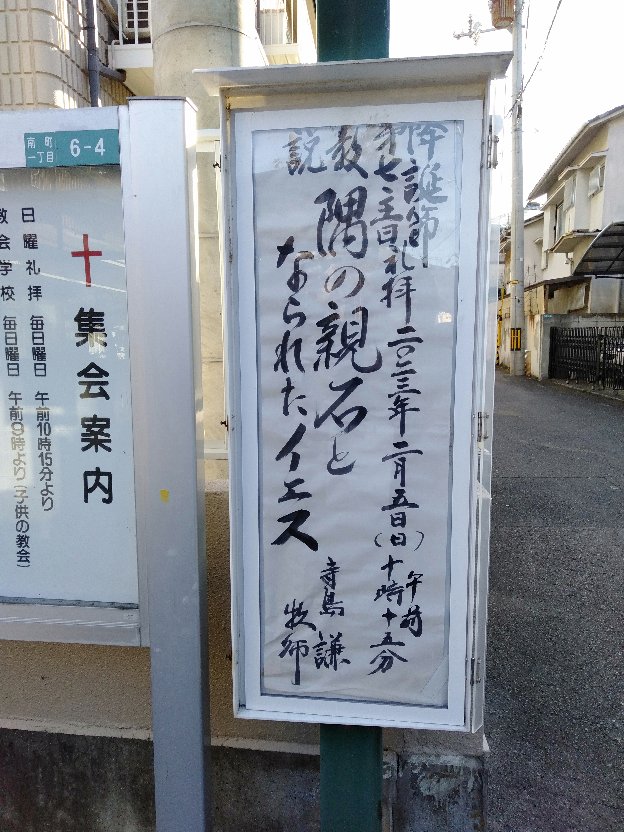 南町
一丁目
6-4
集会案内
日曜礼拝 毎日曜日 午前10時15分より
教会学校 毎日曜日 午前9時より(子供の教会)
降誕節
第七主日礼拝 二〇二三年二月五日(日)午前十時十五分
説教
隅の親石と
なられたイエス
寺島 謙
牧師